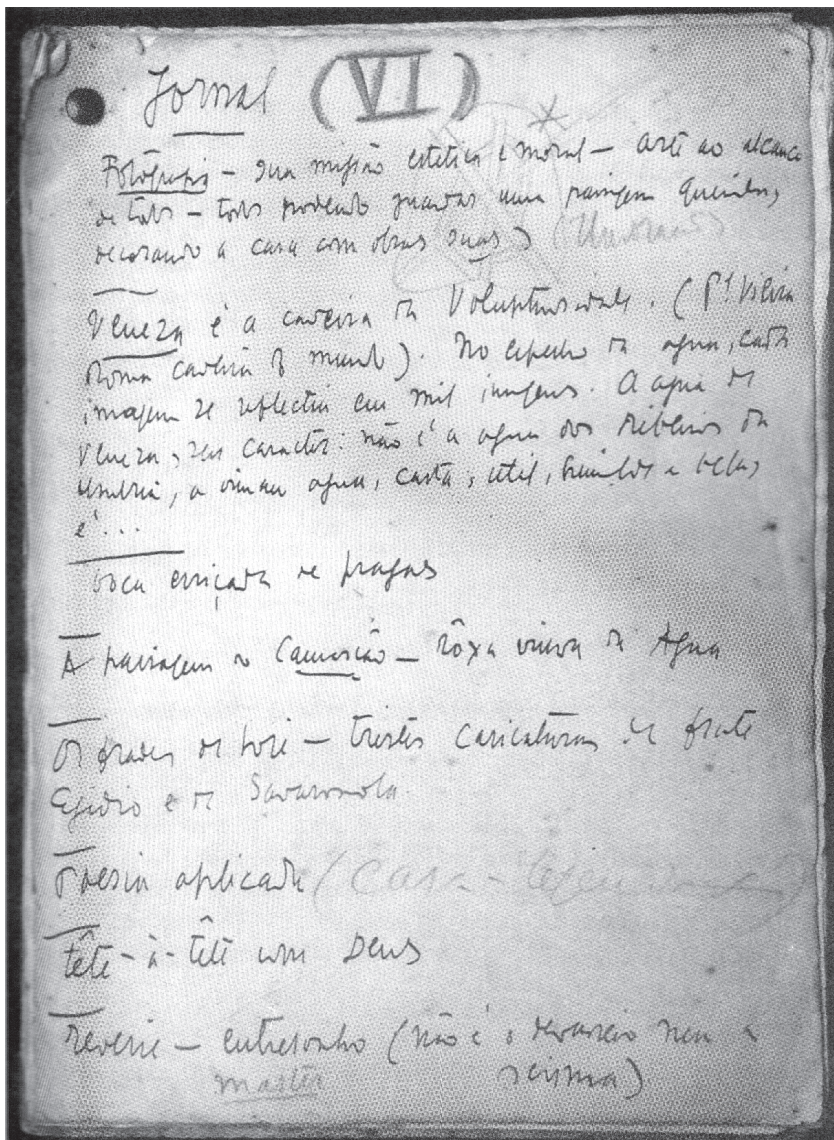 Jornal (VI)
Fotografia – sua missão estetica e moral – arte ao alcance
de todos – todos podendo guardar uma paisagem querida,
decorando a casa com obras suas)
Veneza é a caveira da Voluptuosidade. (Pe Vieira
Roma caveira do mundo). No espelho da agua, cada
imagem se reflectia em mil imagens. A agua de
Veneza, seu caracter: não é a agua dos ribeiros da
Umbria, a irman agua, casta, util, humilde e bella,
é ...
boca erriçada de pragas
A paisagem do Camarão – rôxa viuva da Agua
Os frades de hoje – tristes caricaturas de frate
Egidio e de Savaronola
Poesia aplicada (Casa –
tête-à-tête com Deus
Reverie – entresonho (não é o devaneio nem a
scisma)